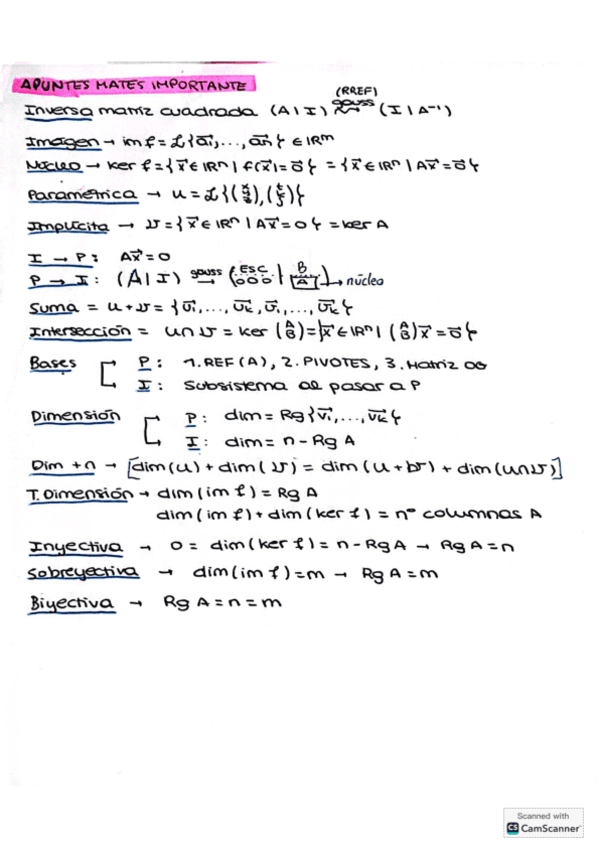 APUNTES MATES IMPORTANTE
Inversa matriz cuadrada (A|I) gauss (RREF) ⟿ (I|A⁻¹)
Imagen → im f = L{a⃗₁,..., a⃗ₙ} ∈ ℝᵐ
Núcleo → ker f = {x⃗ ∈ ℝⁿ | f(x⃗) = 0⃗} = {x⃗ ∈ ℝⁿ | Ax⃗ = 0⃗}
Paramétrica → u =
Implícita → v = {x⃗ ∈ ℝⁿ | Ax⃗ = 0} = ker A
I → P: Ax⃗ = 0
P → I: (A|I) gauss → (ESC 000 | B A) → núcleo
Suma = u + v = {u⃗₁,..., u⃗ₖ, v⃗₁,..., v⃗ₖ}
Intersección = u∩v = ker (A B) = {x⃗ ∈ ℝⁿ | (A B) x⃗ = 0⃗}
Bases P: 1. REF(A), 2. PIVOTES, 3. Matriz OG
I: Subsistema al pasar a P
Dimensión P: dim = Rg{v⃗₁,..., v⃗ₖ}
I: dim = n - Rg A
Dim + n → [dim(u) + dim(v) = dim(u+v) + dim(u∩v)]
T. Dimensión → dim(im f) = Rg A
dim(im f) + dim(ker f) = nº columnas A
Inyectiva → 0 = dim(ker f) = n - Rg A → Rg A = n
Sobreyectiva → dim(im f) = m → Rg A = m
Biyectiva → Rg A = n = m
Scanned with
CS CamScanner